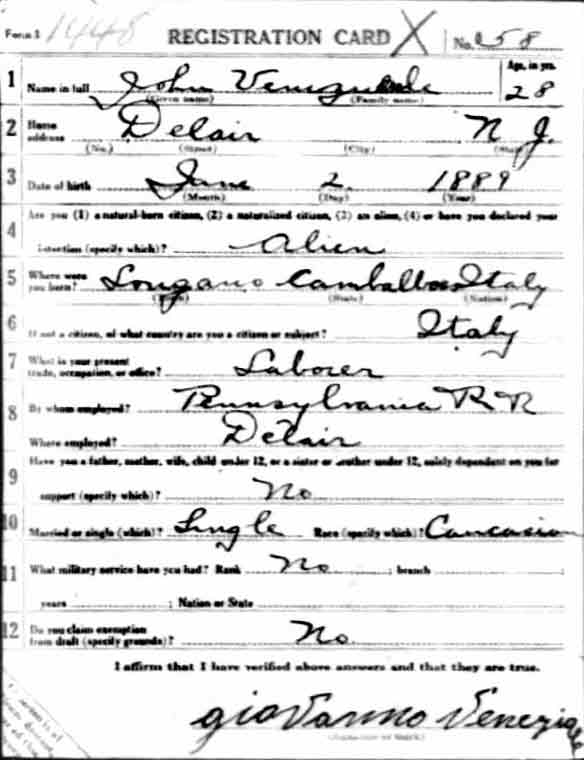 Form 1 1448 REGISTRATION CARD X No. 258
Age, in yrs.
1 Name in full John 28
(Given name) (Family name)
2 Home address Delair N J.
(No.) (Street) (City) (State)
3 Date of birth June 2 1889
(Month) (Day) (Year)
4 Are you (1) a natural-born citizen, (2) a naturalized citizen, (3) an alien, (4) or have you declared your
intention (specify which)? Alien
5 Where were you born? Longano Italy
(Town) (State) (Nation)
6 If not a citizen, of what country are you a citizen or subject? Italy
7 What is your present trade, occupation, or office? Laborer
8 By whom employed? Pennsylvania R R
Where employed? Delair
9 Have you a father, mother, wife, child under 12, or a sister or brother under 12, solely dependent on you for
support (specify which)? No
10 Married or single (which)? Single Race (specify which)? Caucasian
11 What military service have you had? Rank No ; branch
years ; Nation or State
12 Do you claim exemption from draft (specify grounds)? No.
I affirm that I have verified above answers and that they are true.
gioVanno Venezia